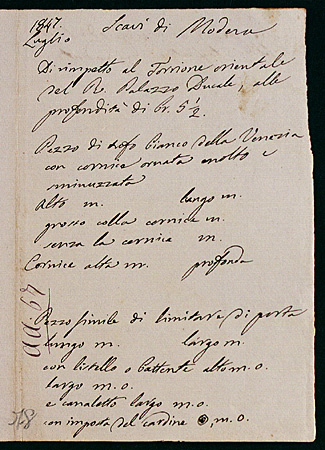 1847. Scavi di Modena
Luglio
Di rimpetto al Torrione orientale
del R. Palazzo Ducale, alla
profondità di br. 5 1/2.
Pezzo di tofo bianco della Venezia
con cornice ornata molto e
minuzzata
Alto m. lungo m.
grosso colla cornice m.
senza la cornice m.
Cornice alta m. profonda
Pezzo simile di limitare di porta
lungo m. largo m.
con listello o battente alto m. 0.
largo m. 0.
e canaletto largo m. 0.
con imposta del cardine m. 0.